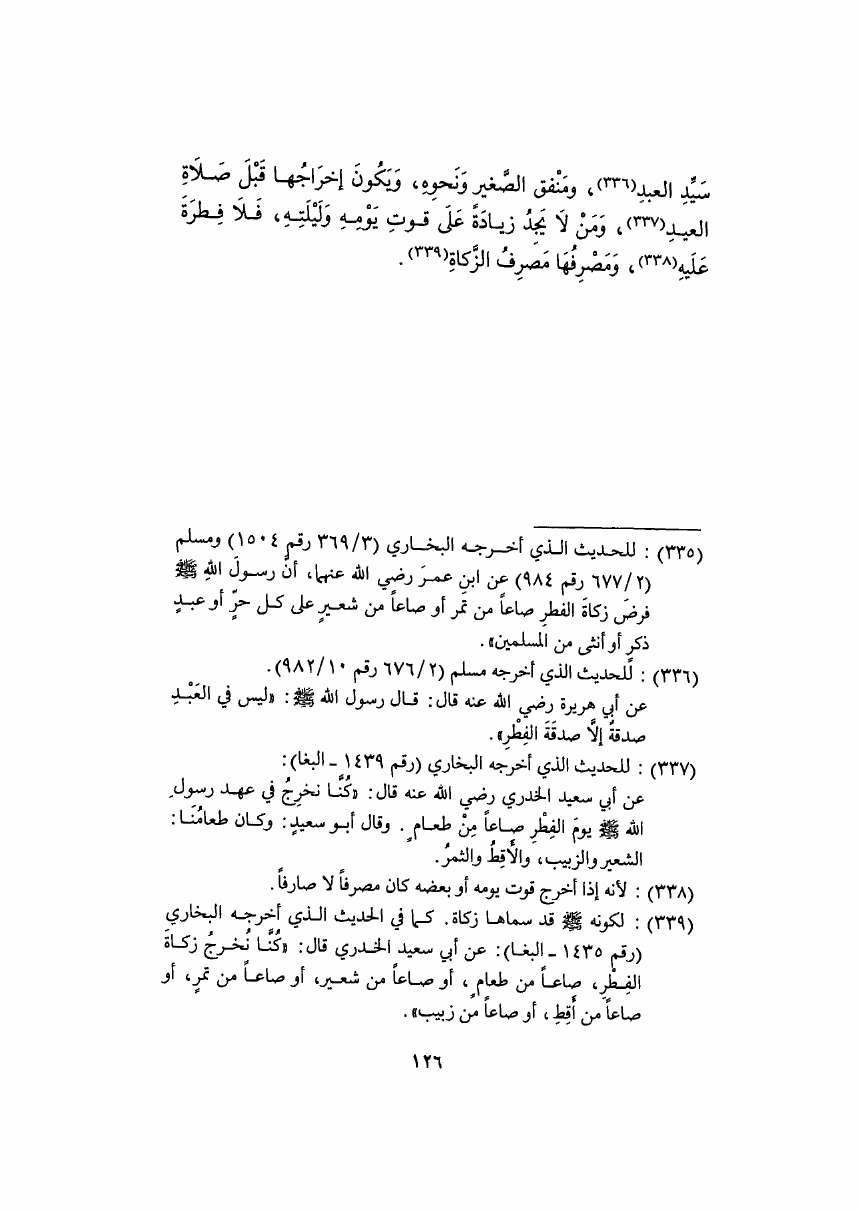 سَيِّدِ العبدِ(٣٣٦)، ومَنْفق الصَّغيرِ وَنَحوِهِ، وَيَكُونَ إخرَاجُهـا قَبْلَ صَـلَاةِ
العيـدِ(٣٣٧)، وَمَنْ لَا يَجِدُ زيـادَةً عَلَى قـوتِ يَوْمِـهِ وَلَيْلَتِـهِ، فَـلَا فِـطرَةَ
عَلَيهِ(٣٣٨)، وَمَصْرِفُهَا مَصرِفُ الزَّكاةِ(٣٣٩).
(٣٣٥) : للحـديث الـذي أخـــرجـه البخـــاري (٣٦٩/٣ رقم ١٥٠٤) ومسلم
(٦٧٧/٢ رقم ٩٨٤) عن ابنِ عمـرَ رضي الله عنهما، أنَّ رسـولَ اللهِ ﷺ
فرضَ زكاةَ الفطرِ صاعاً من تمر أو صاعاً من شعـيرٍ على كـل حرٍّ أو عبـدٍ
ذكرٍ أو أنثى من المسلمين».
(٣٣٦) : للحديث الذي أخرجه مسلم (٦٧٦/٢ رقم ٩٨٢/١٠).
عن أبي هريرة رضي الله عنه قال: قـال رسول الله ﷺ: «ليس في العَبْـدِ
صدقةٌ إلَّا صدقَةَ الفِطْرِ».
(٣٣٧) : للحديث الذي أخرجه البخاري (رقم ١٤٣٩ ـ البغا):
عن أبي سعيد الخدري رضي الله عنه قال: «كُنَّـا نخرِجُ في عهـد رسولِ
الله ﷺ يومَ الفِطْرِ صـاعاً مِنْ طعـامٍ. وقال أبـو سعيدٍ: وكـان طعامُنَـا:
الشعير والزبيب، والأَقِطُ والثمرُ.
(٣٣٨) : لأنه إذا أخرج قوت يومه أو بعضه كان مصرفاً لا صارفاً.
(٣٣٩) : لكونه ﷺ قد سماهـا زكاة. كـما في الحديث الـذي أخرجـه البخاري
(رقم ١٤٣٥ ـ البغـا): عن أبي سعيد الخـدري قال: «كُنَّـا نُخـرجُ زكـاةَ
الفِـطْرِ، صاعـاً من طعامٍ، أو صـاعاً من شعـير، أو صاعـاً من تمرٍ، أو
صاعاً من أَقِطِ، أو صاعاً من زبيب».
١٢٦